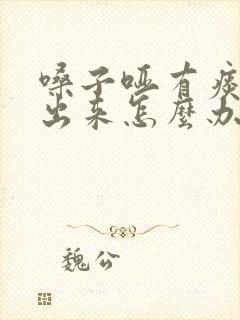 嗓子哑有痰
出来怎麽办
魏公